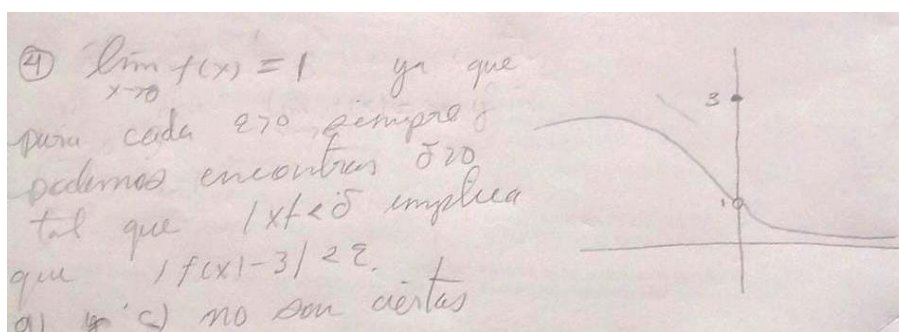 ④ lim f(x) = 1 ya que
x→0
para cada ε>0 siempre
podemos encontrar δ>0
tal que |x|<δ implica
que |f(x)-3|<ε.
a) y c) no son ciertas
3
1